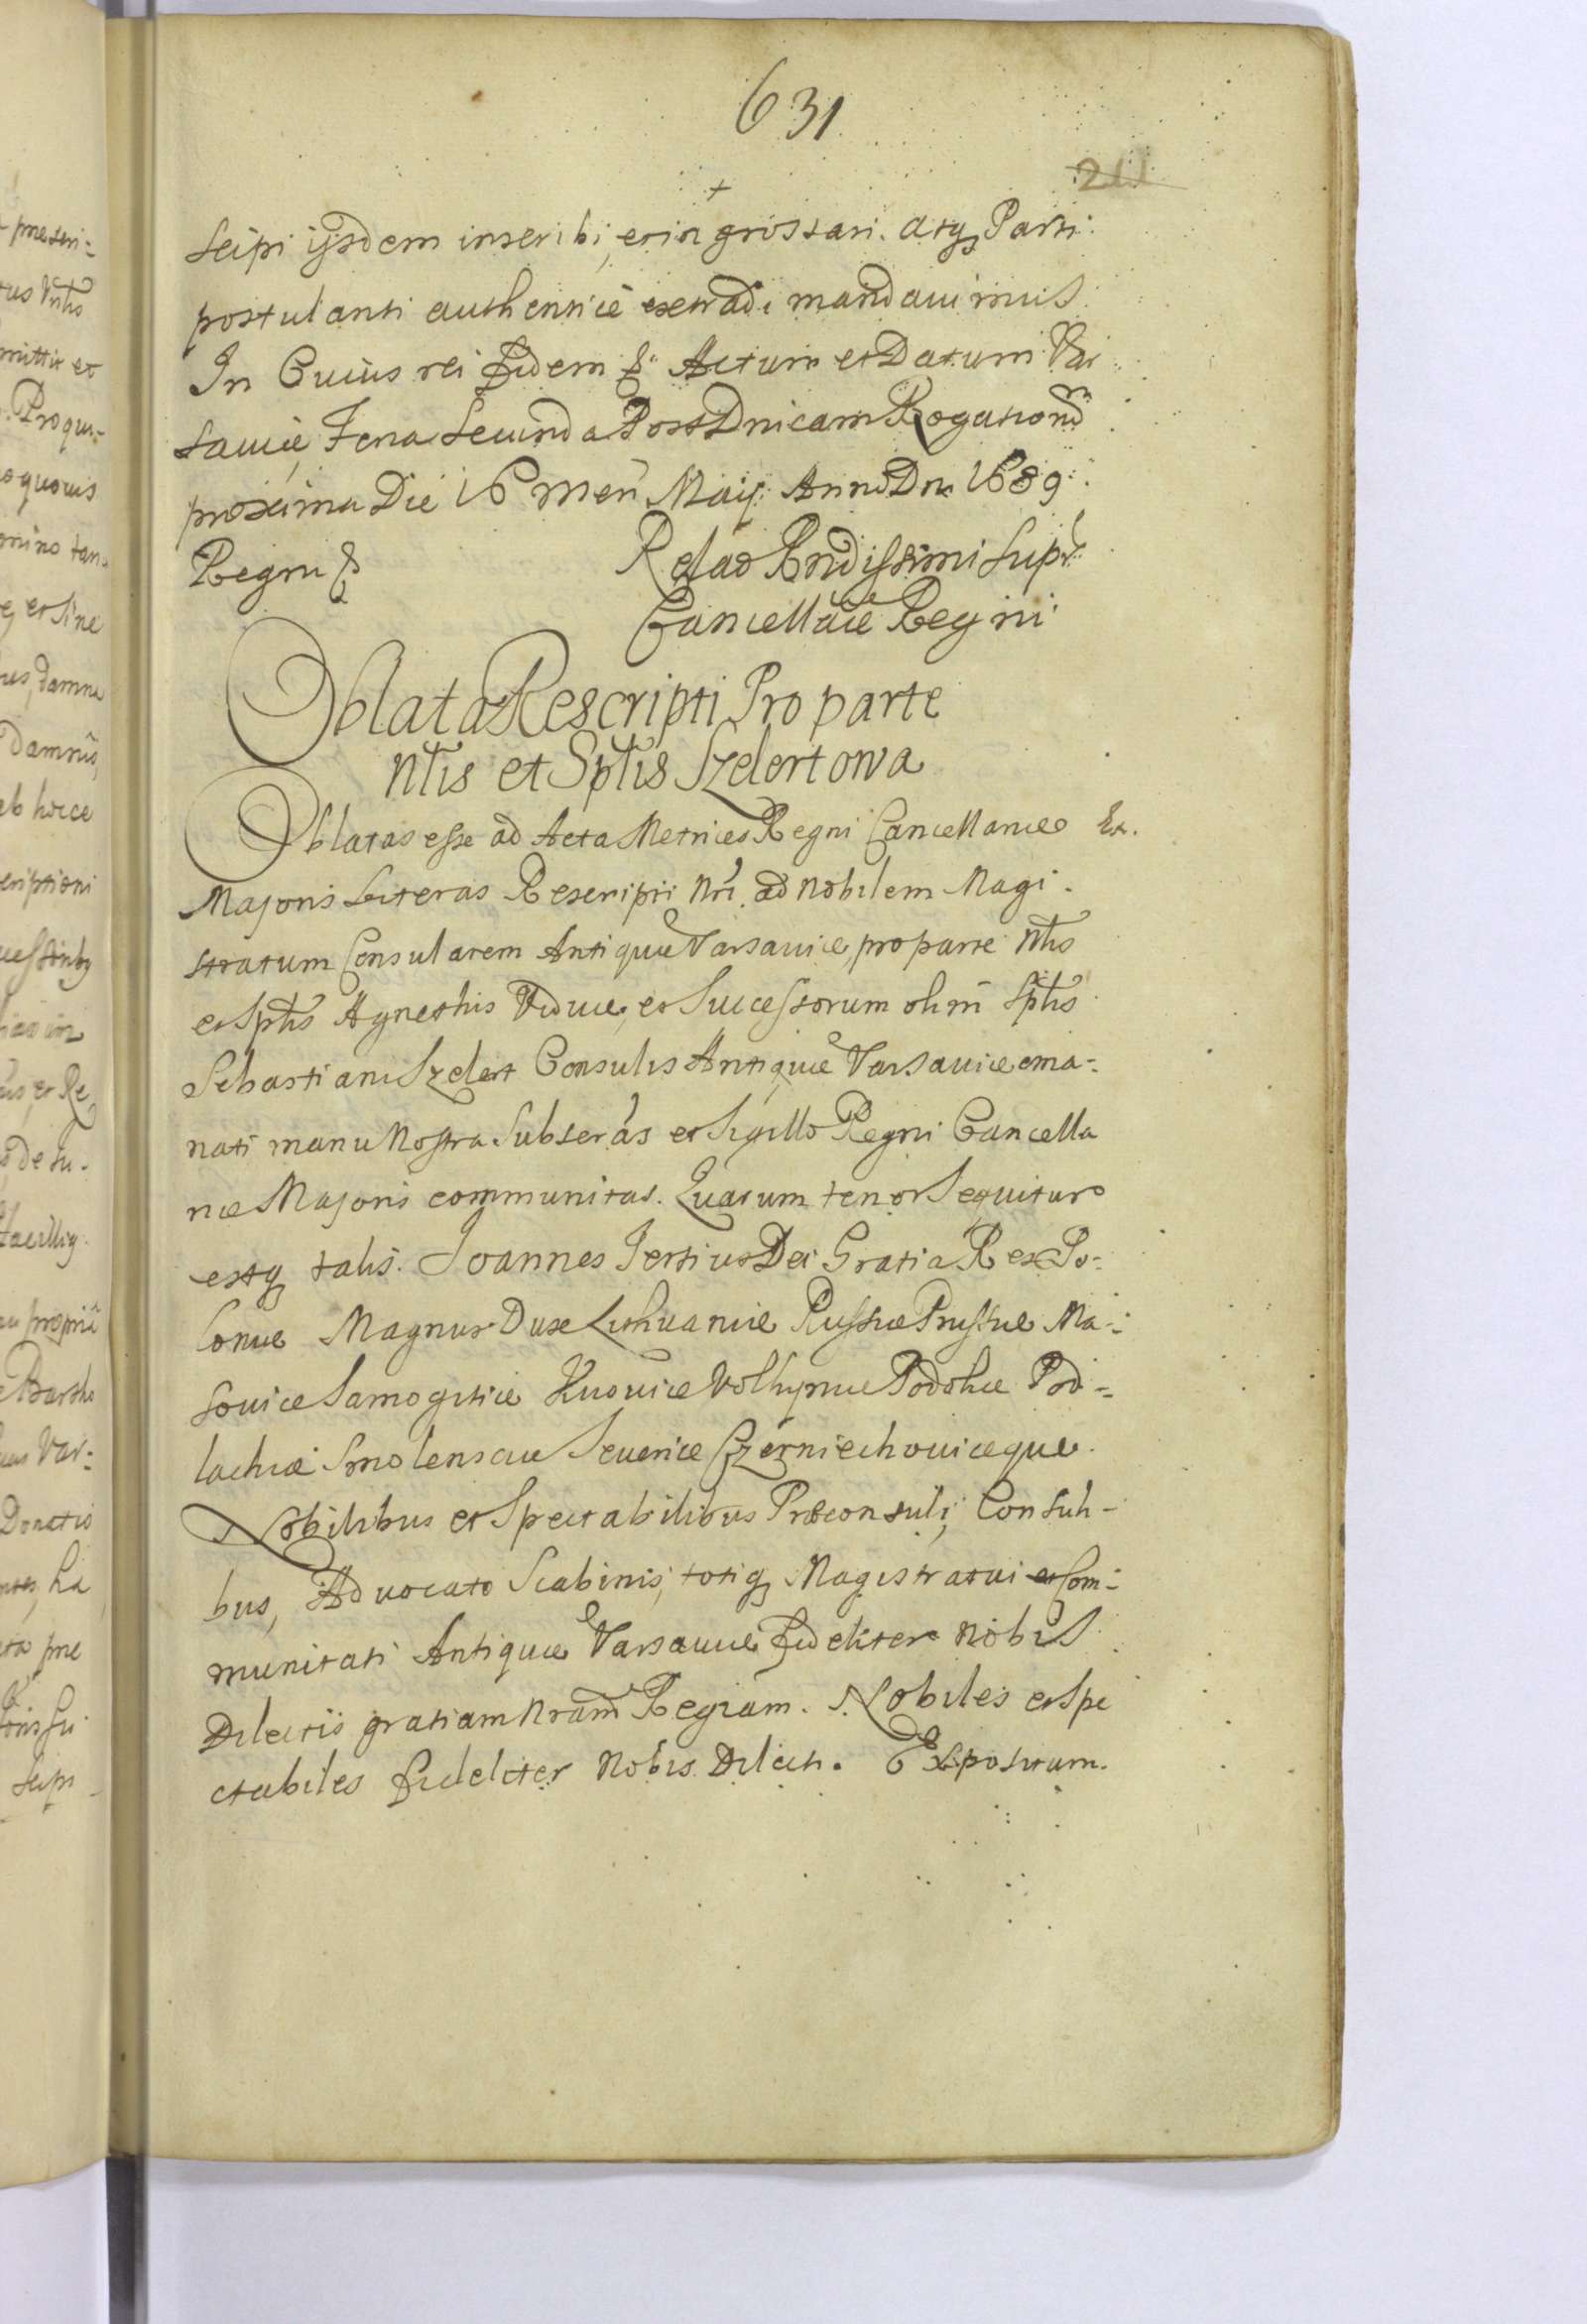 631
211
scipi ijsdem inscribi, et in grossari. atq Parti
postulanti authenticè extradi mandavimus.
In Cuius rei fidem &. Actum et Datum Var
saviæ Feria Secunda Post Dnicam Rogationũ
proxima Die 16 men Maij Anno Dni 1689.
Regni &
Relao Rndissimi Supr
Cancellãie Regni
Oblata Rescripti Pro parte
Nlis et Splis Szelertowa
Oblatas esse ad Acta Metrices Regni Cancellariæ Ex.
Majoris Literas Rescripti Nri ad Nobilem Magi.
stratum Consularem Antiquæ Varsaviæ, pro parte Nlis
et Splis Agnethis Viduæ, et Successorum olim Splis
Sebastiani Szelert Consulis Antiquæ Varsaviæ ema-
nati manu Nostra Subscras et Sigillo Regni Cancella
riæ Majoris communitas. Quarum tenor Sequitur
estq talis. Joannes Tertius Dei Gratia Rex Po-
loniæ Magnus Dux Lithuaniæ Russiæ Prussiæ Ma-
soviæ Samogitiæ Kijoviæ Volhyniæ Podoliæ Pod-
lachiæ Smolensciæ Severiæ Czerniechoviæque.
Nobilibus et Spectabilibus Præconsuli, Consuli-
bus, Advocato Scabinis, totiq Magistratui et Com-
munitati Antiquæ Varsaviæ fideliter Nobis
Dilectis gratiam Nram Regiam. Nobiles et Spe
ctabiles fideliter Nobis Dilecti. Expositum.